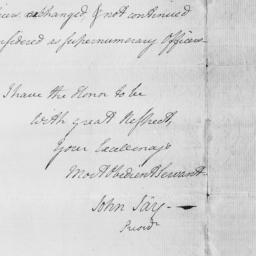 exchanged, & not continued
considered as supernumerary Officers
I have the Honor to be
with great Respect,
Your Excellency's
Most Obedient Servant
John Jay
Presidt